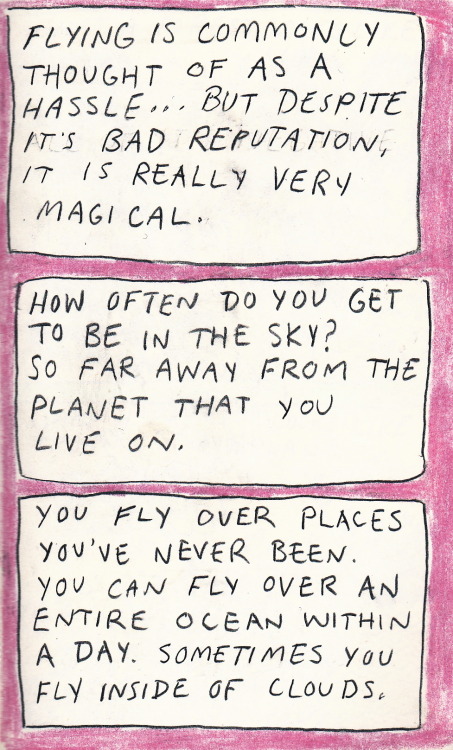 FLYING IS COMMONLY
THOUGHT OF AS A
HASSLE... BUT DESPITE
IT'S BAD REPUTATION,
IT IS REALLY VERY
MAGICAL.
HOW OFTEN DO YOU GET
TO BE IN THE SKY?
SO FAR AWAY FROM THE
PLANET THAT YOU
LIVE ON.
YOU FLY OVER PLACES
YOU'VE NEVER BEEN.
YOU CAN FLY OVER AN
ENTIRE OCEAN WITHIN
A DAY. SOMETIMES YOU
FLY INSIDE OF CLOUDS.